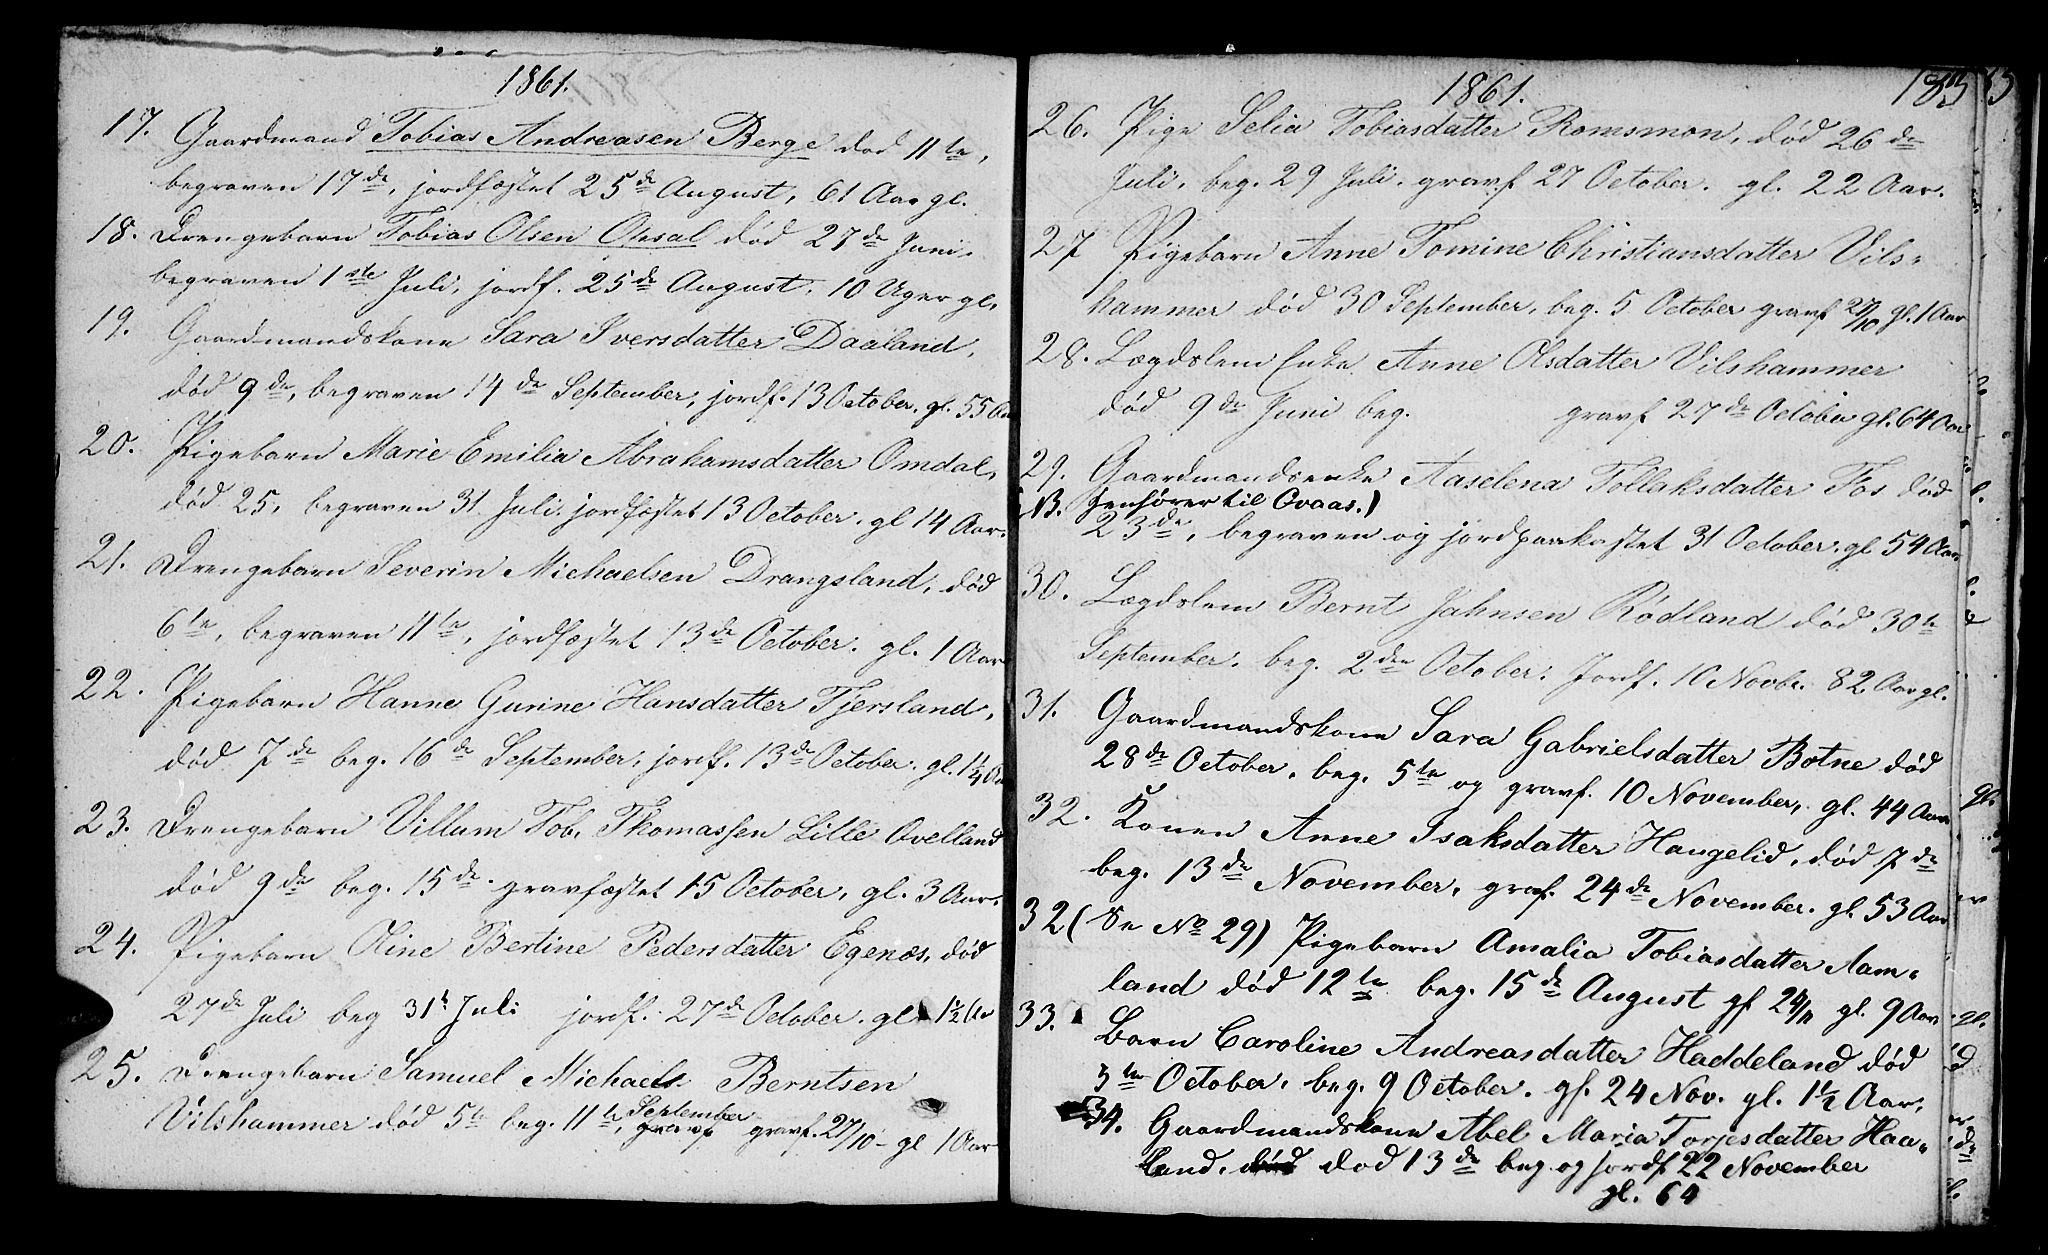 1861.
17. Gaardmand Tobias Andreasen Berge død 11te,
begraven 17de, jordfæstet 25de August, 61 Aar gl.
18. Drengebarn Tobias Olsen Opsal død 27de Juni,
begraven 1ste Juli, jordf. 25de August, 10 Uger gl.
19. Gaardmandskone Sara Iversdatter Daaland,
død 9de, begraven 14de September, jordf. 13 October, gl. 55 Aar
20. Pigebarn Marie Emilia Abrahamsdatter Omdal,
død 25, begraven 31 Juli, jordfæstet 13 October, gl 14 Aar.
21. Drengebarn Severin Michaelsen Drangsland, død
6te, begraven 11te, jordfæstet 13de October. gl. 1 Aar
22. Pigebarn Hanne Gurine Hansdatter Tjersland,
død 7de beg. 16de September, jordf. 13de October. gl. 1 1/4 Aar
23. Drengebarn Villum Tob. Thomassen Lille Ovelland
død 9de beg. 15de gravfæstet 15 October, gl. 3 Aar.
24. Pigebarn Oline Bertine Pedersdatter Egenæs, død
27de Juli beg 31te Juli jordf. 27de October. gl. 1 1/2 Aar
25. Drengebarn Samuel Michaels Berntsen
Vilshammer død 5te beg. 11te, September gravf. 27/10 - gl 1 Aar
1861.
26. Pige Selia Tobiasdatter Romsmon, død 26de
Juli, beg. 29 Juli. gravf 27 October. gl. 22 Aar.
27 Pigebarn Anne Tomine Christiansdatter Vils-
hammer død 30 September, beg. 5 October gravf 27/10 gl. 1 Aar
28. Lægdslem Enke Anne Olsdatter Vilshammer
død 9de Juni beg. gravf 27de October gl. 64 Aar
29. Gaardmandsenke Aaselena Tollaksdatter Fos død
(B. henhører til Qvaas.)
23de, begraven og jordpaakastet 31 October. gl 54 Aar
30. Lægdslem Bernt Jahnsen Rødland død 30te
September, beg. 2den October. Jordf. 10 Novbr. 82 Aar gl.
31. Gaardmandskone Sara Gabrielsdatter Botne død
28de October, beg. 5te og gravf. 10 November, gl. 44 Aar
32. Konen Anne Isaksdatter Haugelid, død 7de
beg. 13de November, grvf. 24de November. gl. 53 Aar
32 (Se No 29) Pigebarn Amalia Tobiasdatter Aam-
land død 12te beg. 15de August gf 24/11 gl. 9 Aar
33. Barn Caroline Andreasdatter Haddeland død
3te October, beg. 9 October. gf. 24 Nov. gl. 1 1/2 Aar.
34. Gaardmandskone Abel Maria Torjesdatter Haa-
land, død 13de beg og jordf 22 November
gl. 64